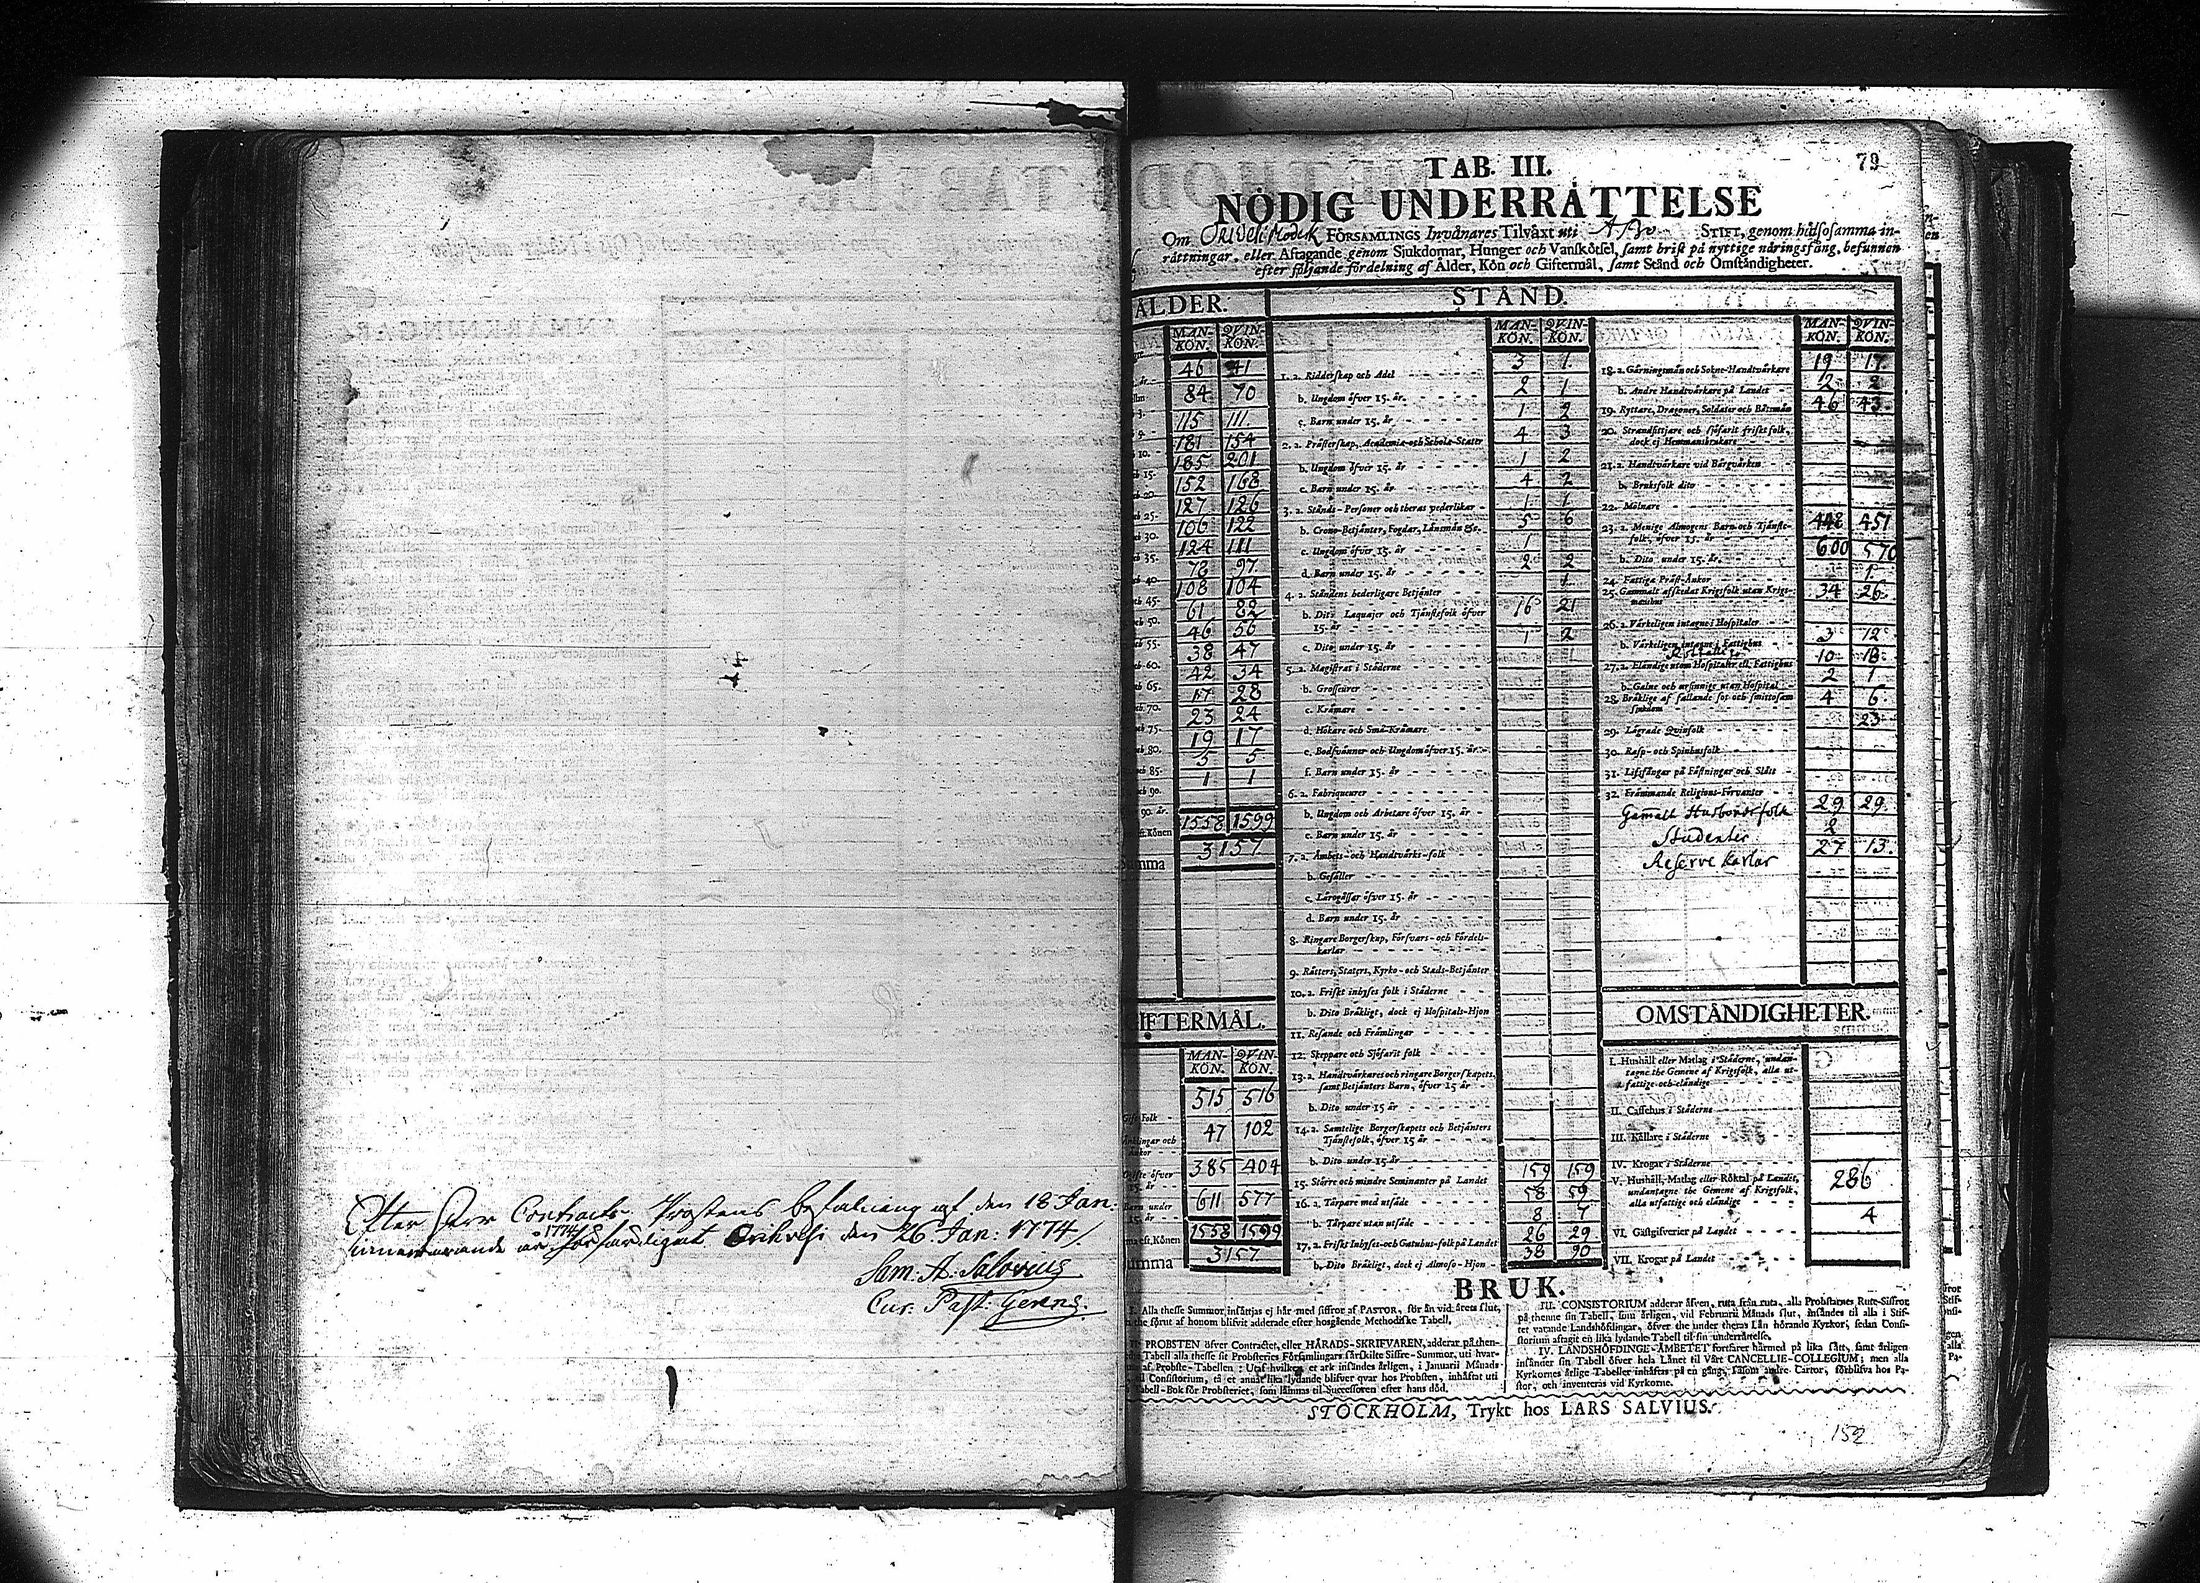 Efter Herr Contracts Prostens befalning af den 18 Jan:
innevarande år 1774 är författadigat Orihvesi den 26 Jan: 1774/
Sam: A: Salovius
Cur. Past: Gerens.
79
TAB. III.
NÖDIG UNDERRÄTTELSE
Om Orivesi Moderk FÖRSAMLINGS Invånares Tilväxt uti Åbo STIFT, genom hälsosamma in-
råttningar, eller Aftagande genom Sjukdomar, Hunger och Vanskötsel, samt brist på nyttige näringsfång, befunnen
efter följande fördelning af Ålder, Kön och Giftermål, samt Stånd och Omständigheter.
ÅLDER.
MAN-KÖN. QVIN-KÖN.
46 41
84 70
115 111
181 154
185 201
152 168
127 126
106 122
124 111
78 97
108 104
61 82
46 56
38 47
42 34
17 28
23 24
19 17
5 5
1 1
1558 1599
Summa 3157
GIFTERMÅL.
MAN-KÖN. QVIN-KÖN.
Gift Folk 515 516
47 102
385 404
611 577
1558 1599
3157
STÅND.
MAN-KÖN. QVIN-KÖN.
1. a. Ridderskap och Adel 3 1
b. Ungdom öfver 15. år. 2 1
c. Barn under 15. år 1 2
2. a. Prästerskap, Academiæ och Schole-Stater 4 3
b. Ungdom öfver 15. år 1 2
c. Barn under 15. år 4 2
3. a. Stånds-Personer och theras vederlikar 1 1
b. Crono-Betjänter, Fogdar, Länsmän &c. 5 6
c. Ungdom öfver 15. år 1
d. Barn under 15. år 2 2
4. a. Ståndens hederligare Betjänter 1
b. Dito Laquajer och Tjänstefolk öfver
15. år 16 21
c. Dito under 15. år 1 2
5. a. Magistrat i Städerne
b. Grosseurer
c. Krämare
d. Hökare och Små-Krämare
e. Bodsvänner och Ungdom öfver 15. år
f. Barn under 15. år
6. a. Fabriqueurer
b. Ungdom och Arbetare öfver 15. år
c. Barn under 15. år
7. a. Ämbets- och Handtvärks-folk
b. Gesäller
c. Lärogåssar öfver 15. år
d. Barn under 15. år
8. Ringare Borgerskap, Försvars- och Fördels-
karlar
9. Rätters, Staters, Kyrko- och Stads-Betjänter
10. a. Friskt inhyses folk i Städerne
b. Dito Bräkligt, dock ej Hospitals-Hjon
11. Resande och Främlingar
12. Skeppare och Sjöfarit folk
13. a. Handtvärkares och ringare Borgerskapets,
samt Betjänters Barn, öfver 15 år
b. Dito under 15 år
14. a. Samtelige Borgerskapets och Betjänters
Tjänstefolk, öfver 15 år
b. Dito under 15 år
15. Större och mindre Seminanter på Landet 159 159
16. a. Tårpare med utsäde 58 59
b. Tårpare utan utsäde 8 7
17. a. Friskt Inhyses- och Gatuhus-folk på Landet 26 29
b. Dito Bräkligt, dock ej Almoso-Hjon 38 90
MAN-KÖN. QVIN-KÖN.
18. a. Gärningsmän och Sokne-Handtvärkare 19 17
b. Andre Handtvärkare på Landet 2 2
19. Ryttare, Dragoner, Soldater och Båtsmän 46 43
20. Strandsittjare och sjöfarit friskt folk,
dock ej Hemmansbrukare
21. a. Handtvärkare vid Bärgvärken
b. Bruksfolk dito
22. Mölnare
23. a. Menige Almogens Barn och Tjänste-
folk, öfver 15. år 448 451
b. Dito under 15. år. 600 570
24. Fattiga Präst-Änkor 1
25. Gammalt afskedat Krigsfolk utan Krigs-
manshus 34 26
26. a. Värkeligen intagne i Hospitaler
b. Värkeligen intagne i Fattighus 3 12
27. a. Eländige utom Hospitaler ell. Fattighus 10 18
b. Galne och ursinnige utan Hospital 2 1
28. Bräklige af fallande sot och smittosam
sjukdom 4 6
29. Lägrade Qvinfolk 23
30. Rasp- och Spinhusfolk
31. Lifsfångar på Fästningar och Slått
32. Främmande Religions-Förvanter
Gamalt Husbondsfolk 29 29
Studenter 2
Reserve karlar 27 13
OMSTÄNDIGHETER.
I. Hushåll eller Matlag i Städerne, undan-
tagne the Gemene af Krigsfolk, alla ut-
fattige och eländige
II. Caffehus i Städerne
III. Källare i Städerne
IV. Krogar i Städerne
V. Hushåll, Matlag eller Röktal på Landet,
undantagne the Gemene af Krigsfolk,
alla utfattige och eländige 286
VI. Gästgifverier på Landet 4
VII. Krogar på Landet
BRUK.
I. Alla thesse Summor insättjas ej här med siffror af PASTOR, för än vid årets slut,
the förut af honom blifvit adderade efter hosgående Methodiske Tabell.
II. PROBSTEN öfver Contractet, eller HÄRADS-SKRIFVAREN, adderar på then-
Tabell alla thesse sit Probsteries Församlingars särskilte Siffre-Summor, uti hvar-
af Probste-Tabellen: Utaf hvilken et ark insändes årligen, i Januarii Månads
Consistorium, tå et annat lika lydande blifver qvar hos Probsten, inhäftat uti
Tabell-Bok för Probsteriet, som lämnas til Successoren efter hans död.
III. CONSISTORIUM adderar äfven, ruta från ruta, alla Probstarnes Rute-Siffror
på thenne sin Tabell, som årligen, vid Februarii Månads slut, insändes til alla i Stif-
tet varande Landshöfdingar, öfver the under theras Län hörande Kyrkor, sedan Consi-
storium aftagit en lika lydande Tabell til sin underrättelse.
IV. LANDSHÖFDINGE-ÄMBETET fortfarer härmed på lika sätt, samt årligen
insänder sin Tabell öfver hela Länet til Vårt CANCELLIE-COLLEGIUM; men alla
Kyrkornes årlige Tabeller inhäftas på en gång, såsom andre Cartor, förblifva hos Pa-
stor, och inventeras vid Kyrkorne.
STOCKHOLM, Tryckt hos LARS SALVIUS.
152